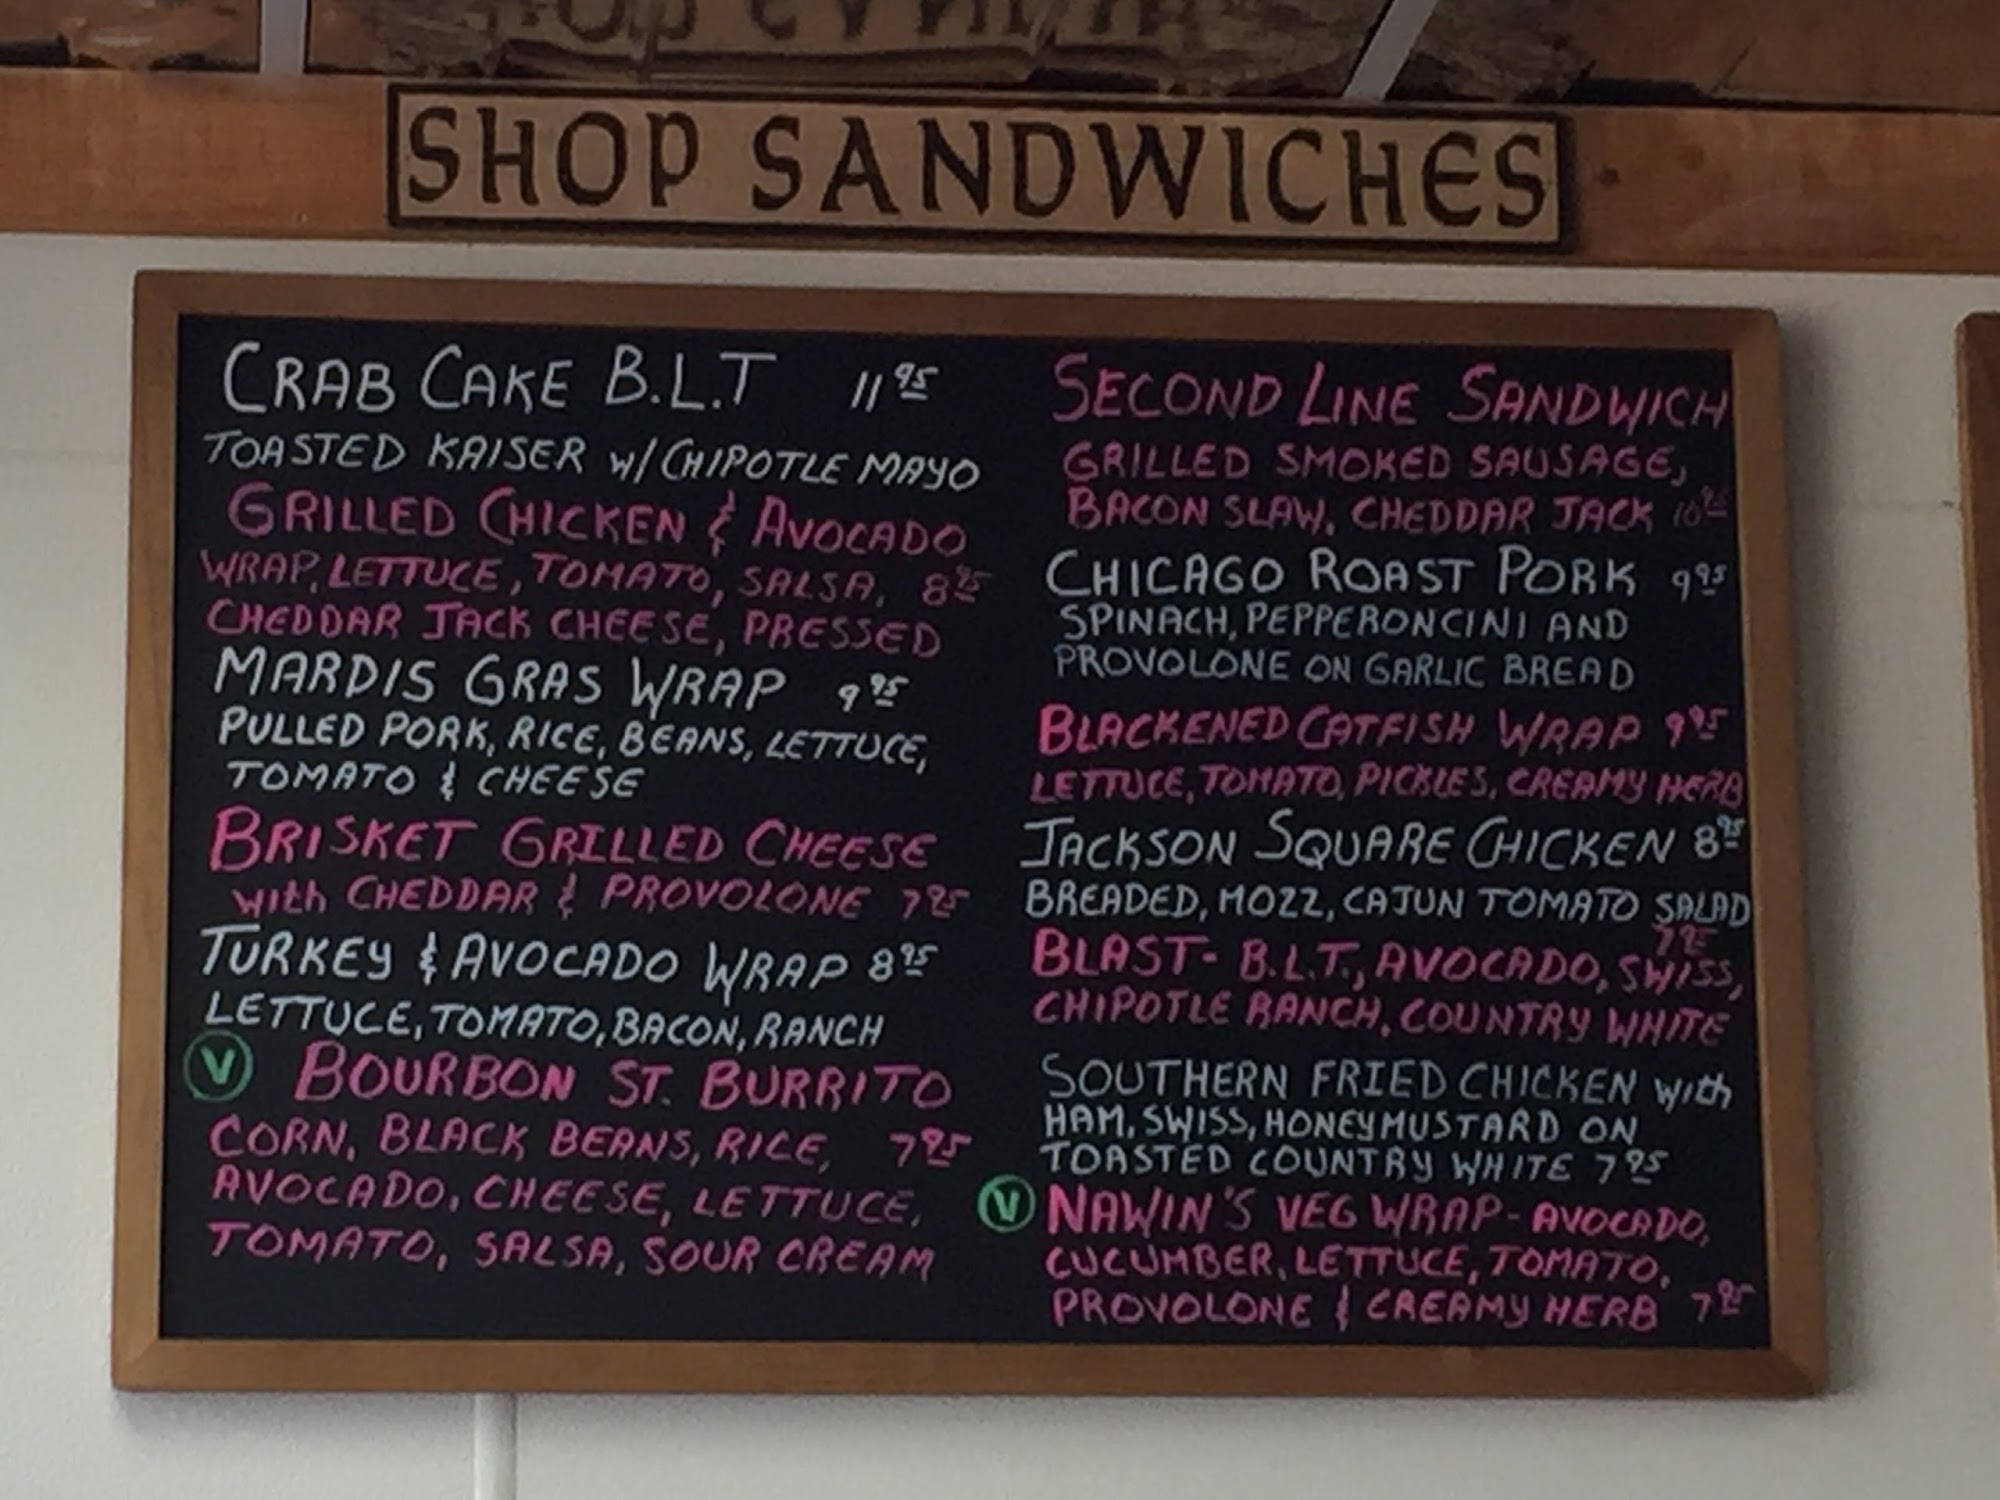 SHOP SANDWICHES
CRAB CAKE B.L.T 11 95
TOASTED KAISER w/ CHIPOTLE MAYO
GRILLED CHICKEN & AVOCADO
WRAP, LETTUCE, TOMATO, SALSA, 8 95
CHEDDAR JACK CHEESE, PRESSED
MARDIS GRAS WRAP 9 95
PULLED PORK, RICE, BEANS, LETTUCE,
TOMATO & CHEESE
BRISKET GRILLED CHEESE
with CHEDDAR & PROVOLONE 7 95
TURKEY & AVOCADO WRAP 8 95
LETTUCE, TOMATO, BACON, RANCH
V BOURBON ST. BURRITO
CORN, BLACK BEANS, RICE, 7 95
AVOCADO, CHEESE, LETTUCE,
TOMATO, SALSA, SOUR CREAM
SECOND LINE SANDWICH
GRILLED SMOKED SAUSAGE,
BACON SLAW, CHEDDAR JACK 10 95
CHICAGO ROAST PORK 9 95
SPINACH, PEPPERONCINI AND
PROVOLONE ON GARLIC BREAD
BLACKENED CATFISH WRAP 9 95
LETTUCE, TOMATO, PICKLES, CREAMY HERB
JACKSON SQUARE CHICKEN 8 95
BREADED, MOZZ, CAJUN TOMATO SALAD
7 95
BLAST- B.L.T., AVOCADO, SWISS,
CHIPOTLE RANCH, COUNTRY WHITE
SOUTHERN FRIED CHICKEN with
HAM, SWISS, HONEYMUSTARD ON
TOASTED COUNTRY WHITE 7 95
V NAWIN'S VEG WRAP- AVOCADO,
CUCUMBER, LETTUCE, TOMATO,
PROVOLONE & CREAMY HERB 7 95